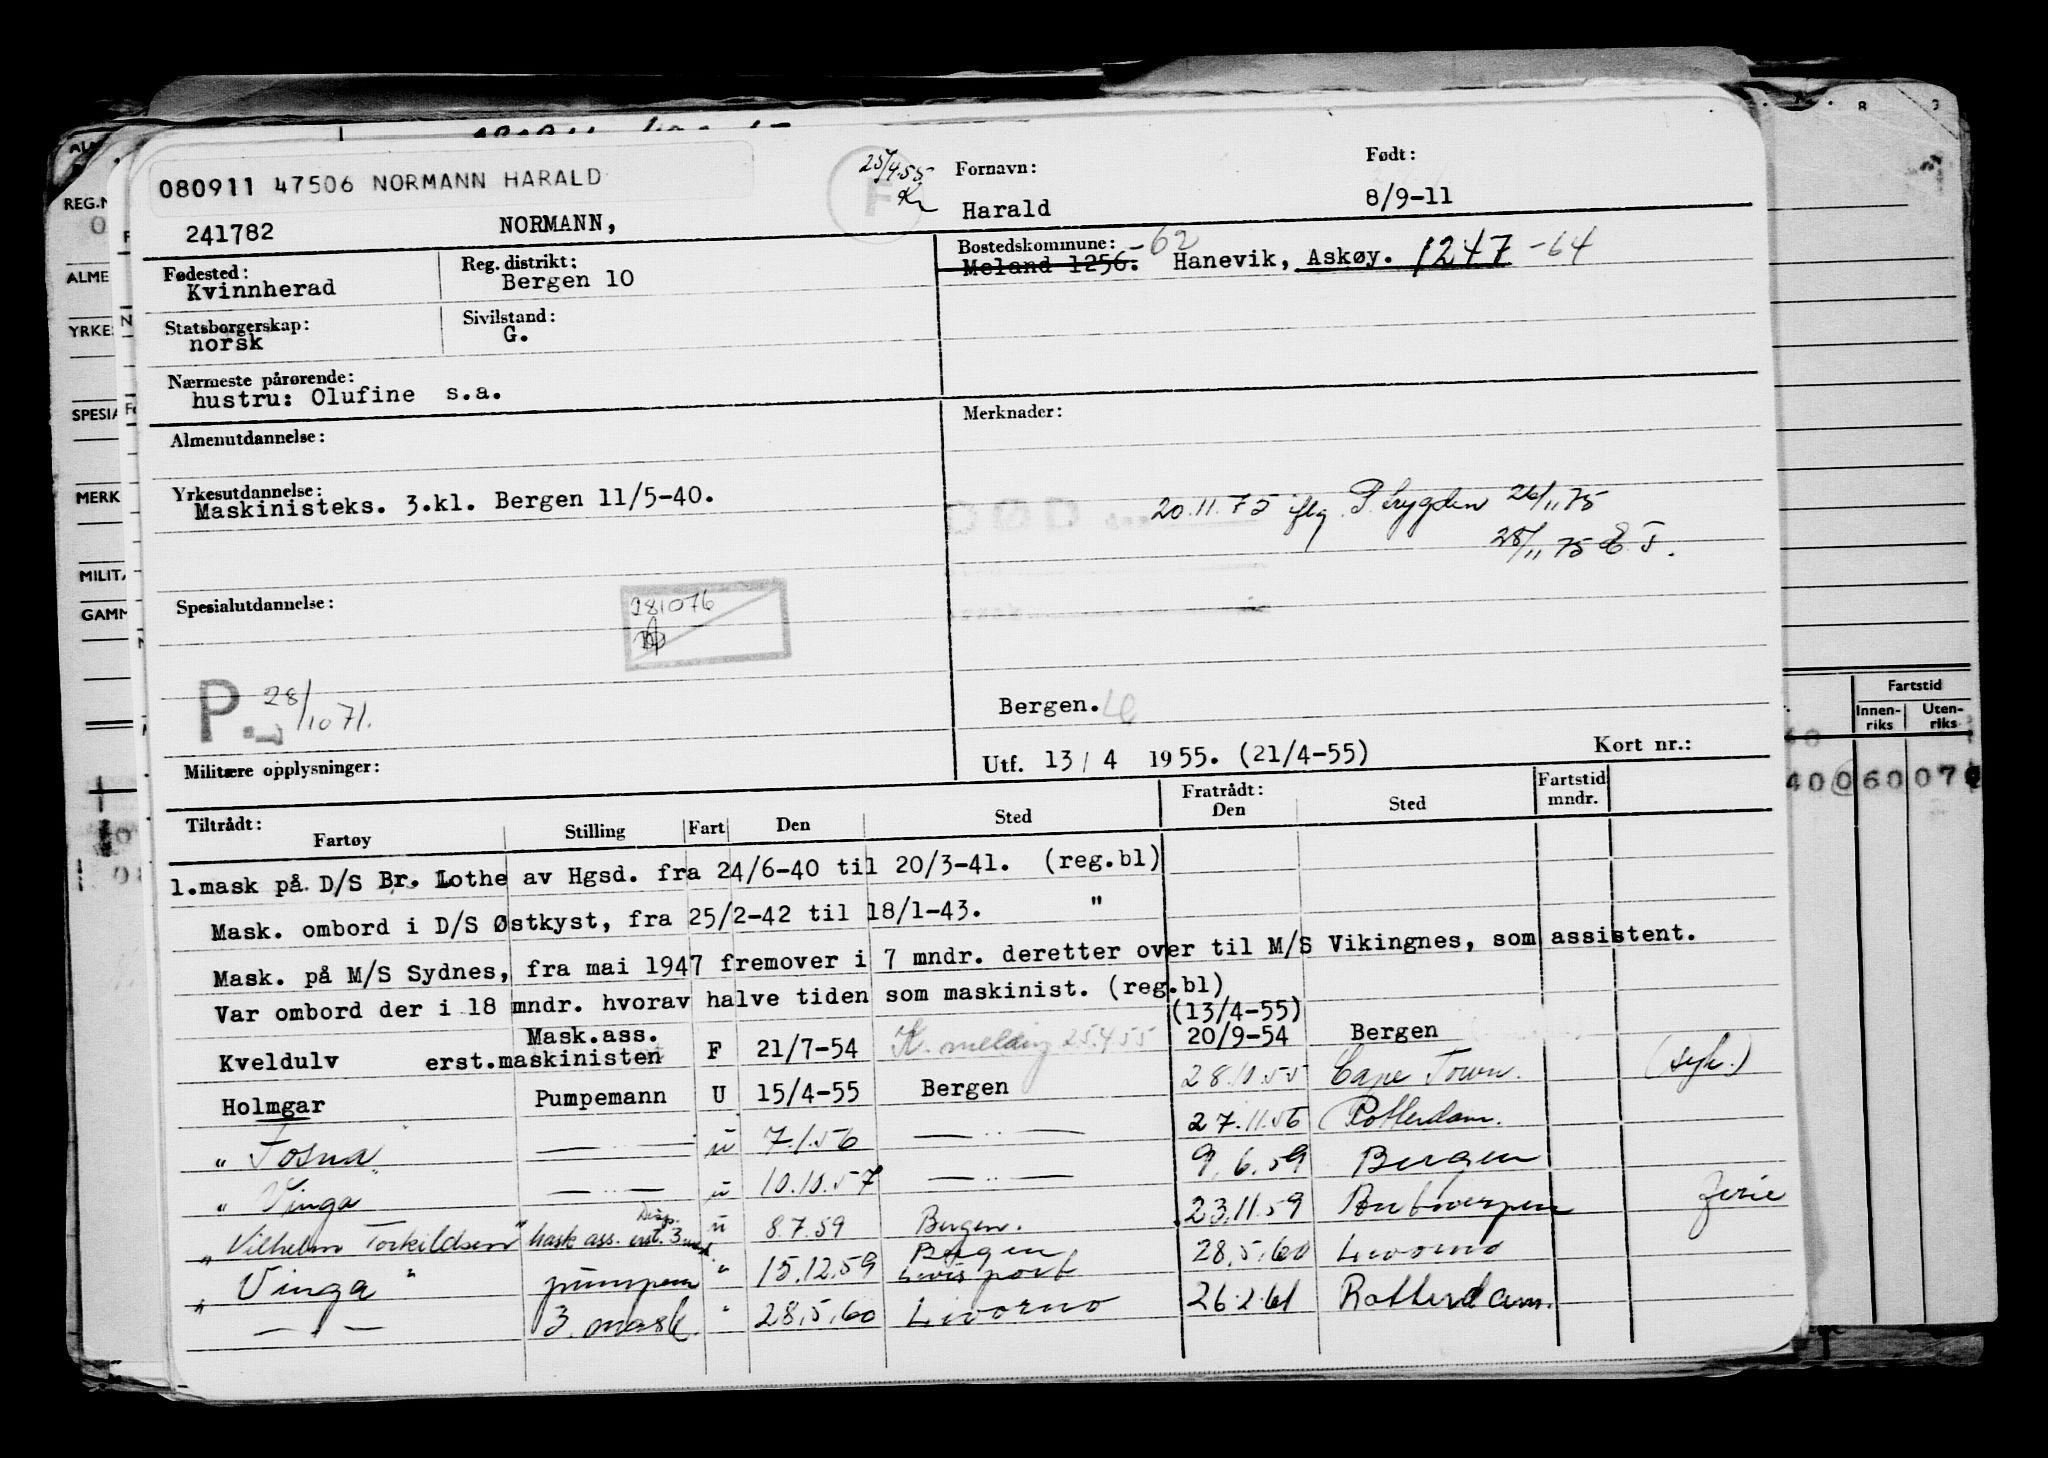 080911 47506 NORMANN HARALD
25/4.55 Kr
F
Fornavn:
Født:
241782 NORMANN,
Harald
8/9-11
Fødested:
Kvinnherad
Reg. distrikt:
Bergen 10
Bostedskommune: -62
Meland 1256. Hanevik, Askøy. 1247 -64
Statsborgerskap:
norsk
Sivilstand:
G.
Nærmeste pårørende:
hustru: Olufine s.a.
Almenutdannelse:
Merknader:
Yrkesutdannelse:
Maskinisteks. 3.kl. Bergen 11/5-40.
20.11.75 iflg. 26/11 75
28/11 75 E.T.
Spesialutdannelse:
281076
P. 28/10 71.
Bergen.
Militære opplysninger:
Utf. 13/ 4 1955. (21/4-55) Kort nr.:
Tiltrådt:
Fartøy Stilling Fart Den Sted Fratrådt: Den Sted Fartstid mndr.
1.mask på D/S Br. Lothe av Hgsd. fra 24/6-40 til 20/3-41. (reg.bl)
Mask. ombord i D/S Østkyst, fra 25/2-42 til 18/1-43. "
Mask. på M/S Sydnes, fra mai 1947 fremover i 7 mndr. deretter over til M/S Vikingnes, som assistent.
Var ombord der i 18 mndr. hvorav halve tiden som maskinist. (reg.bl)
(13/4-55)
Kveldulv Mask.ass. erst.maskinisten F 21/7-54 K. melding 25.4.55 20/9-54 Bergen
Holmgar Pumpemann U 15/4-55 Bergen 28.10.55 Cape Town. (syk.)
" Fosna " — " — u 7.1.56 — " — 27.11.56 Rotterdam.
" Vinga — " — u 10.10.57 — " — 9.6.59 Bergen
" Vilhelm Torkildsen " Mask ass. Disp. erst. 3 mask u 8.7.59 Bergen. 23.11.59 Antwerpen ferie
" Vinga " pumpem " 15.12.59 Bergen 28.5.60 Livorno
— " — 3. mask. " 28.5.60 Livorno 26.2.61 Rotterdam.
REG.N
ALME
YRKES
SPESIA
MERK
MILITÆ
GAMM
Fartstid
Innen-riks
Uten-riks